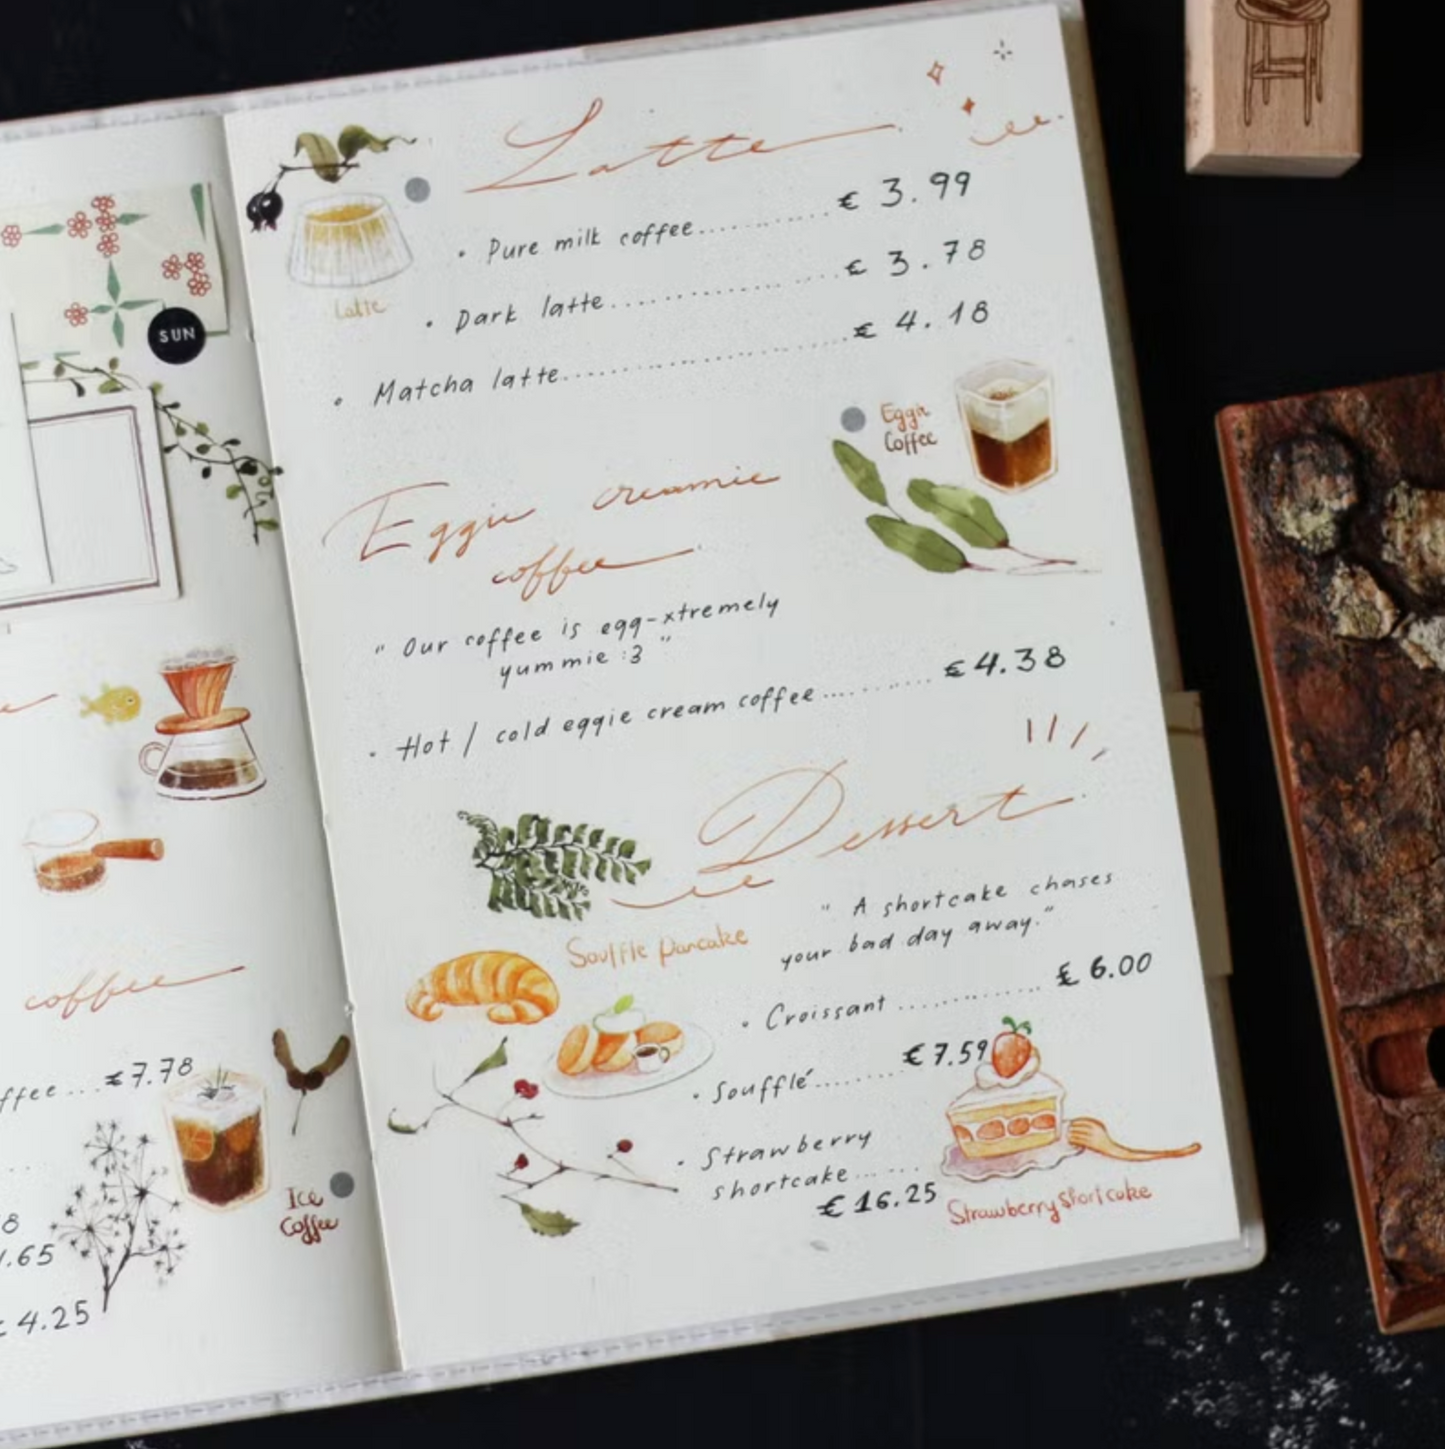 SUN
coffee
ffee...€7.78
Ice
Coffee
8
.65
4.25
Latte
Latte
• Pure milk coffee.......... € 3.99
• Dark latte.................... € 3.78
• Matcha latte......................... € 4.18
Eggie
Coffee
Eggie creamie
coffee
" Our coffee is egg-xtremely
yummie :3 "
• Hot / cold eggie cream coffee ........... €4.38
Dessert
" A shortcake chases
your bad day away."
Souffle pancake
• Croissant .............. € 6.00
• Soufflé......... €7.59
• Strawberry
shortcake.......
€ 16.25
Strawberry Shortcake